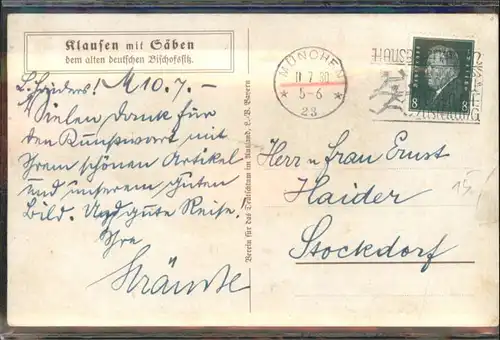 Klausen mit Säben
dem alten deutschen Bischofssitz.
M 10.7.-
Vielen Dank für
den Kunstwart mit
Ihrem schönen Artikel
und unserem guten
Bild. Und gute Reise!
Ihre
Verein für das Deutschtum im Ausland, L.-V. Bayern
MÜNCHEN
11.7.30
5-6
* 23 *
8 8
Herr u Frau Ernst
Haider
Stockdorf